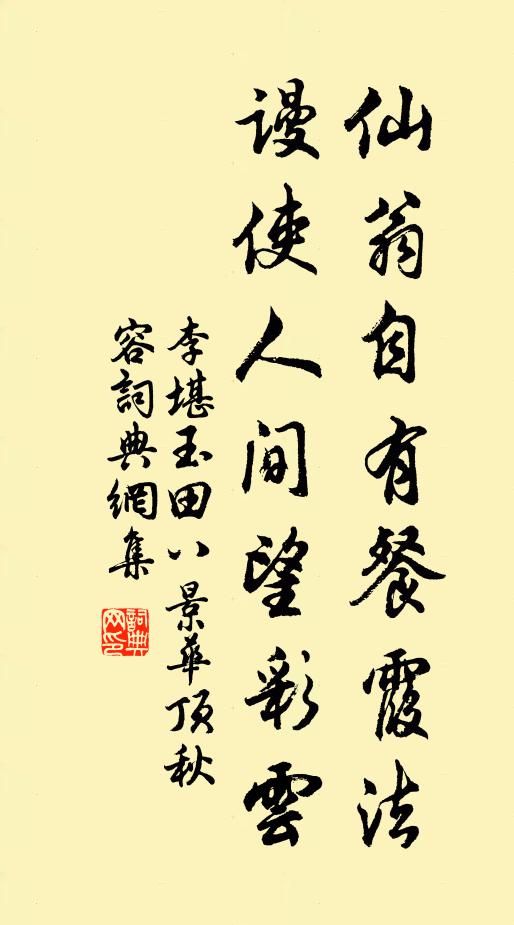 仙翁自有餐霞法
谩使人间望彩雲
李堪玉田八景華顶秋
容詞典網集
詞典网印